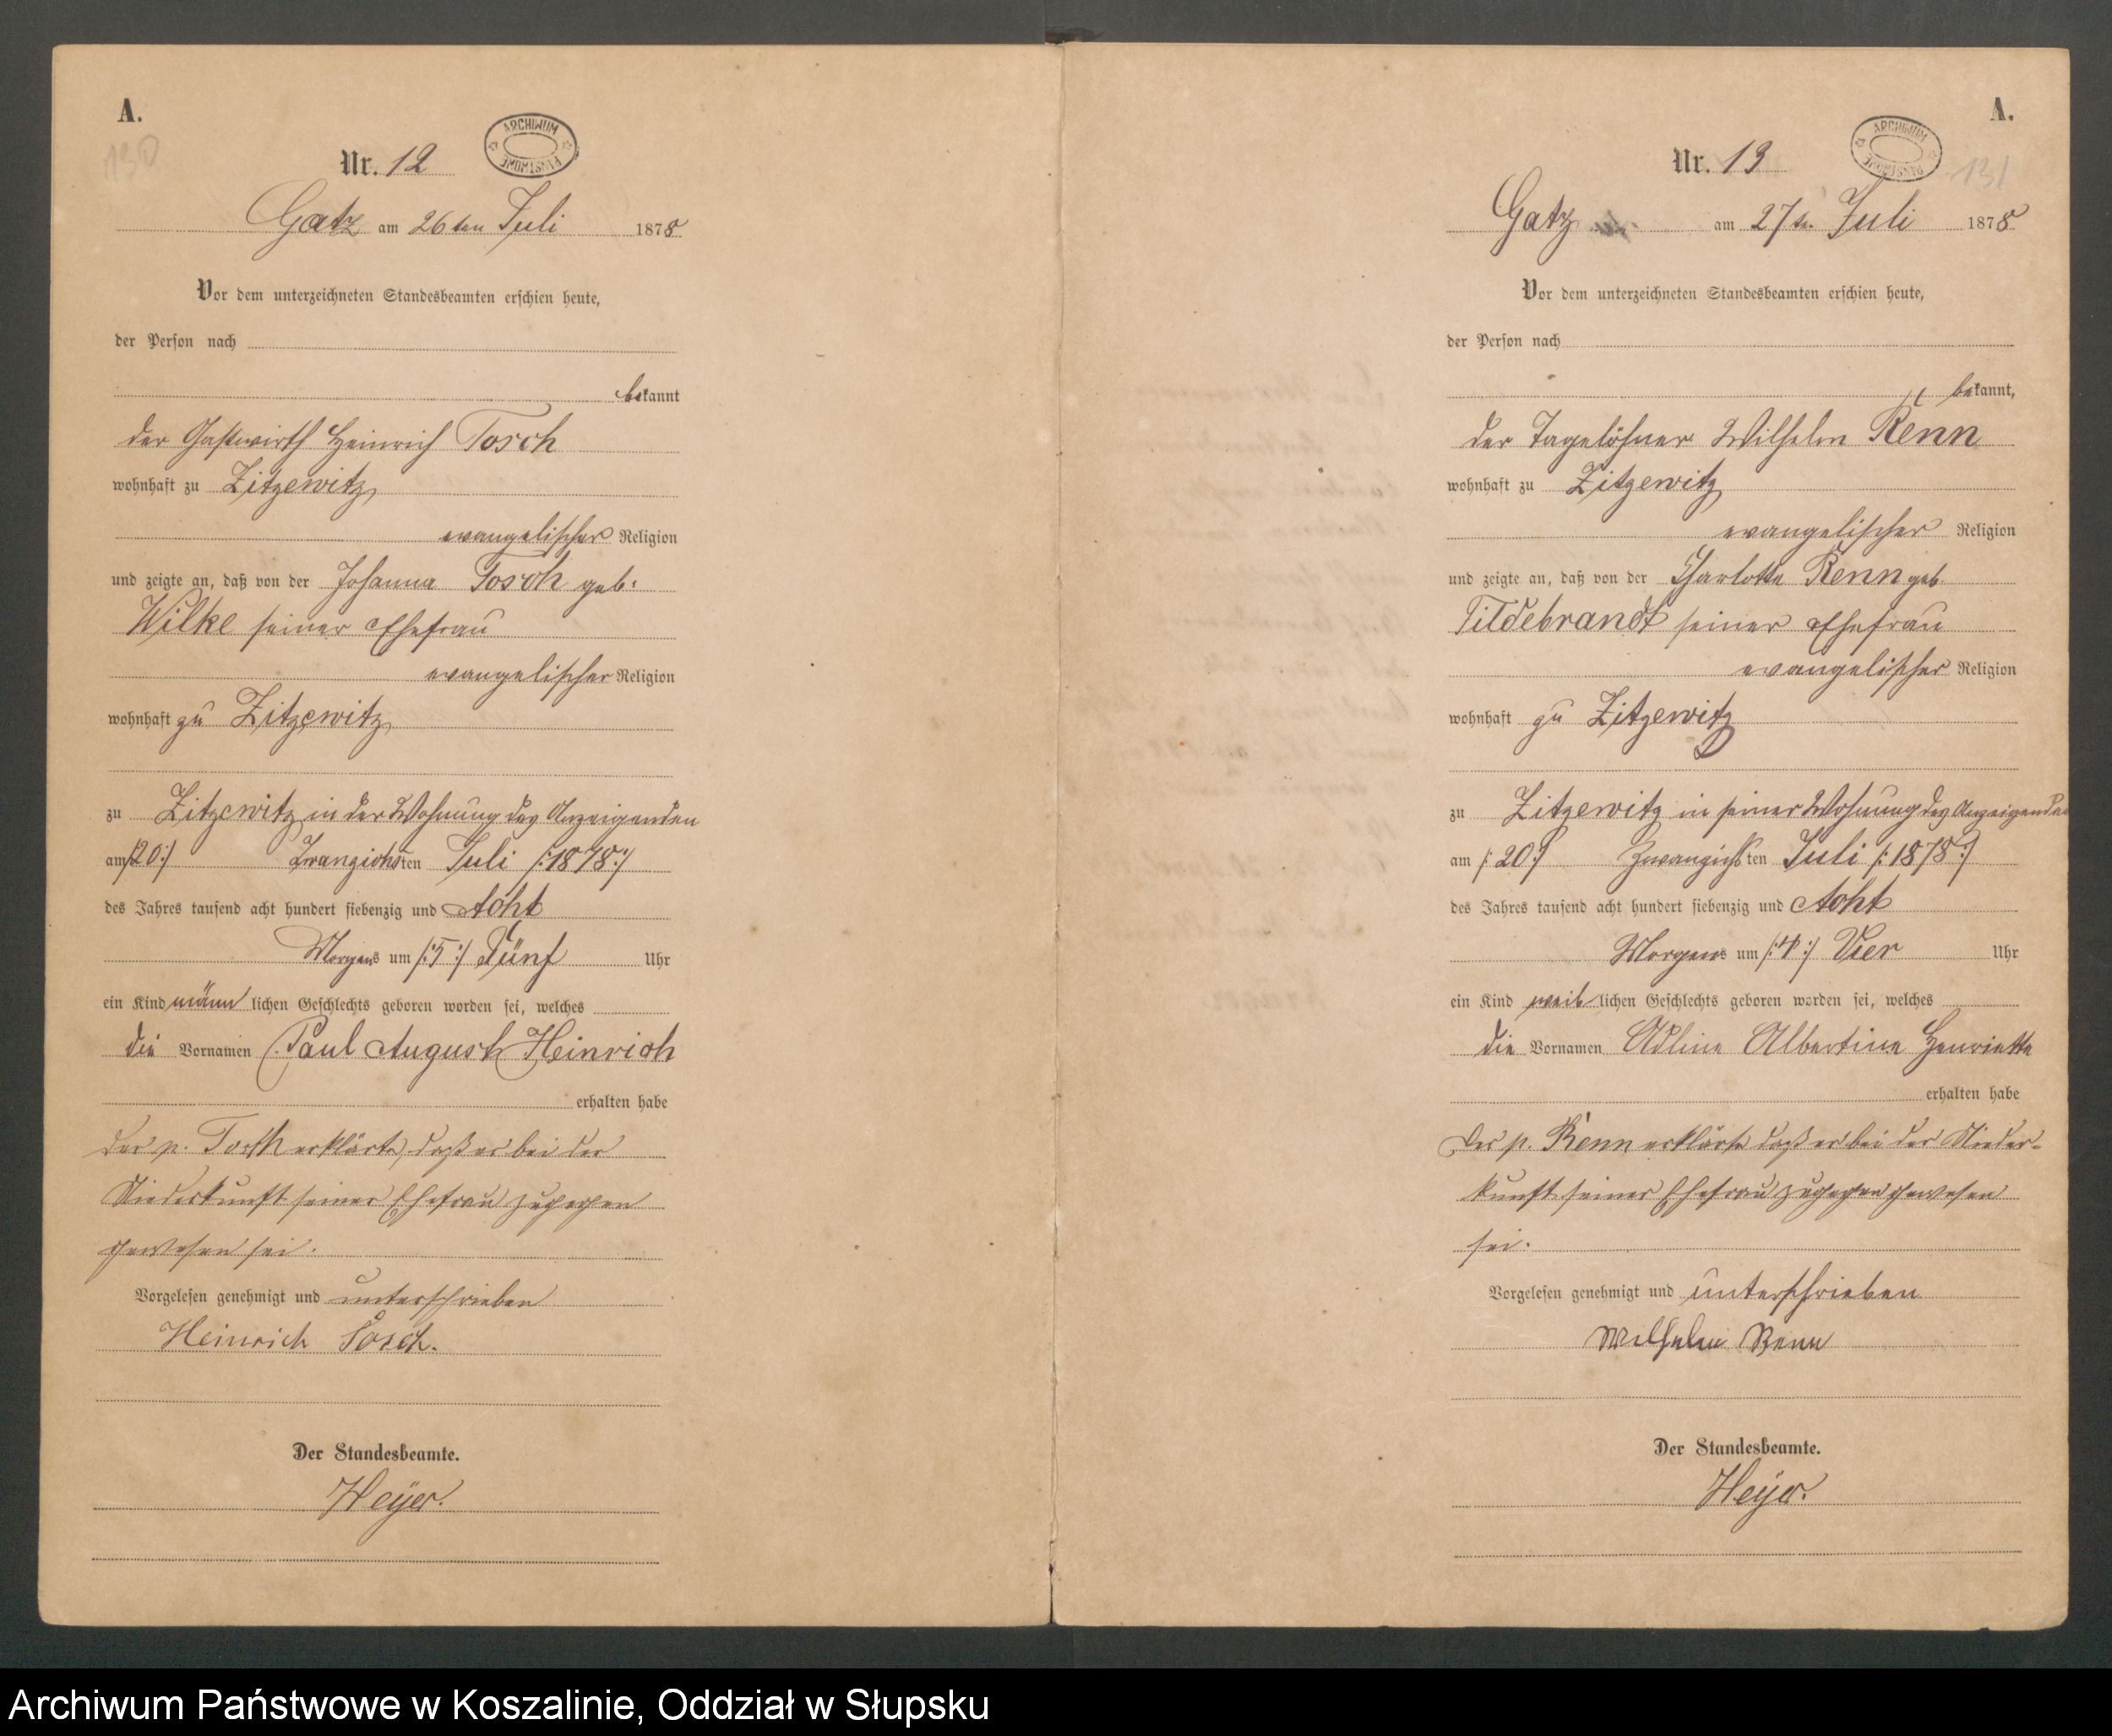 A.
130
Nr. 12
ARCHIWUM PAŃSTWOWE
Gatz am 26ten Juli 1878
Vor dem unterzeichneten Standesbeamten erschien heute,
der Person nach
bekannt
der Gastwirth Heinrich Tosch
wohnhaft zu Zitzewitz
evangelischer Religion
und zeigte an, daß von der Johanna Tosch geb:
Wilke seiner Ehefrau
evangelischer Religion
wohnhaft zu Zitzewitz
zu Zitzewitz in der Wohnung des Anzeigenden
am /:20:/ Zwanzigsten Juli /:1878:/
des Jahres tausend acht hundert siebenzig und Acht
Morgens um /:5:/ Fünf Uhr
ein Kind männlichen Geschlechts geboren worden sei, welches
die Vornamen Paul August Heinrich
erhalten habe
Der p. Tosch erklärte, daß er bei der
Niederkunft seiner Ehefrau zugegen
gewesen sei.
Vorgelesen genehmigt und unterschrieben
Heinrich Tosch.
Der Standesbeamte.
Heyer.
A.
131
Nr. 13
ARCHIWUM PAŃSTWOWE
Gatz am 27te. Juli 1878
Vor dem unterzeichneten Standesbeamten erschien heute,
der Person nach
bekannt,
der Tagelöhner Wilhelm Renn
wohnhaft zu Zitzewitz
evangelischer Religion
und zeigte an, daß von der Charlotte Renn geb
Tildebrandt seiner Ehefrau
evangelischer Religion
wohnhaft zu Zitzewitz
zu Zitzewitz in seiner Wohnung des Anzeigenden
am /:20:/ Zwanzigsten Juli /:1878:/
des Jahres tausend acht hundert siebenzig und Acht
Morgens um /:4:/ Vier Uhr
ein Kind weiblichen Geschlechts geboren worden sei, welches
die Vornamen Adline Albertine Henriette
erhalten habe
Der p. Renn erklärte daß er bei der Nieder-
kunft seiner Ehefrau zugegen gewesen
sei.
Vorgelesen genehmigt und unterschrieben
Wilhelm Renn
Der Standesbeamte.
Heyer.
Archiwum Państwowe w Koszalinie, Oddział w Słupsku